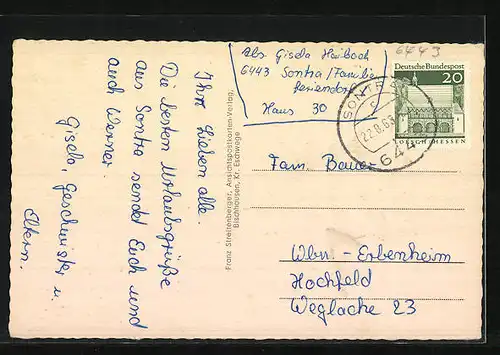 Ihr Lieben alle.
Die besten Urlaubsgrüße
aus Sontra sendet Euch und
auch Werner.
Gisela, Geschwister u.
Eltern.
Franz Streitenberger, Ansichtspostkarten-Verlag,
Bischhausen, Kr. Eschwege
Abs. Gisela Haibach
6443 Sontra/Familien
feriendorf
Haus 30
6443
Deutsche Bundespost
20
LORSCH/HESSEN
SONTRA
644
Fam. Bauer
Wbn-Erbenheim
Hochfeld
Weglache 23